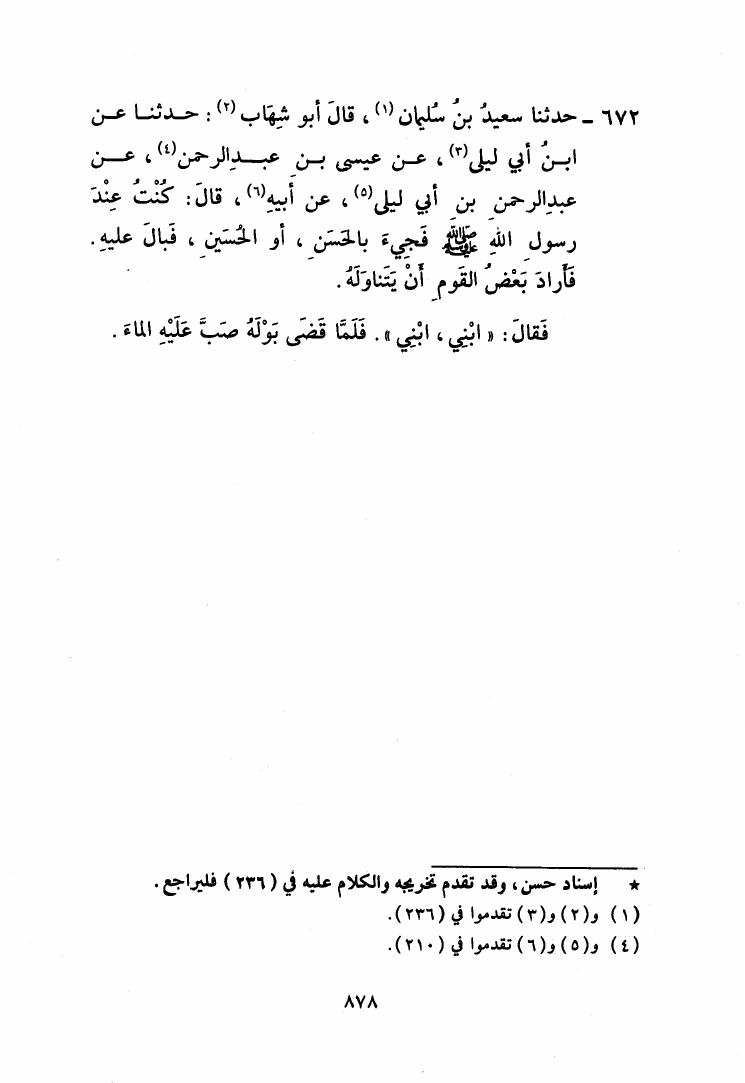 ٦٧٢ ـ حدثنا سعيدُ بنُ سُليمان (١) ، قالَ أبو شِهَاب (٢) : حـدثنـا عـن
ابـنُ أبي ليلى (٣) ، عـن عيسى بـنِ عبـدِالرحمن (٤) ، عـن
عبدِالرحمنِ بنِ أبي ليلى (٥) ، عن أبيهِ (٦) ، قالَ: كُنْتُ عِنْدَ
رسولِ اللهِ ﷺ فَجِيءَ بالحَسَنِ ، أو الحُسَينِ ، فَبالَ عليهِ .
فَأَرادَ بَعْضُ القَومِ أَنْ يَتَناوَلَهُ .
فَقالَ: « ابْنِي ، ابْنِي » . فَلَمَّا قَضَى بَوْلَهُ صَبَّ عَلَيْهِ الماءَ .
★ إسناد حسن ، وقد تقدم تخريجه والكلام عليه في ( ٢٣٦ ) فليراجع .
(١) و(٢) و(٣) تقدموا في (٢٣٦).
(٤) و(٥) و(٦) تقدموا في (٢١٠).
٨٧٨